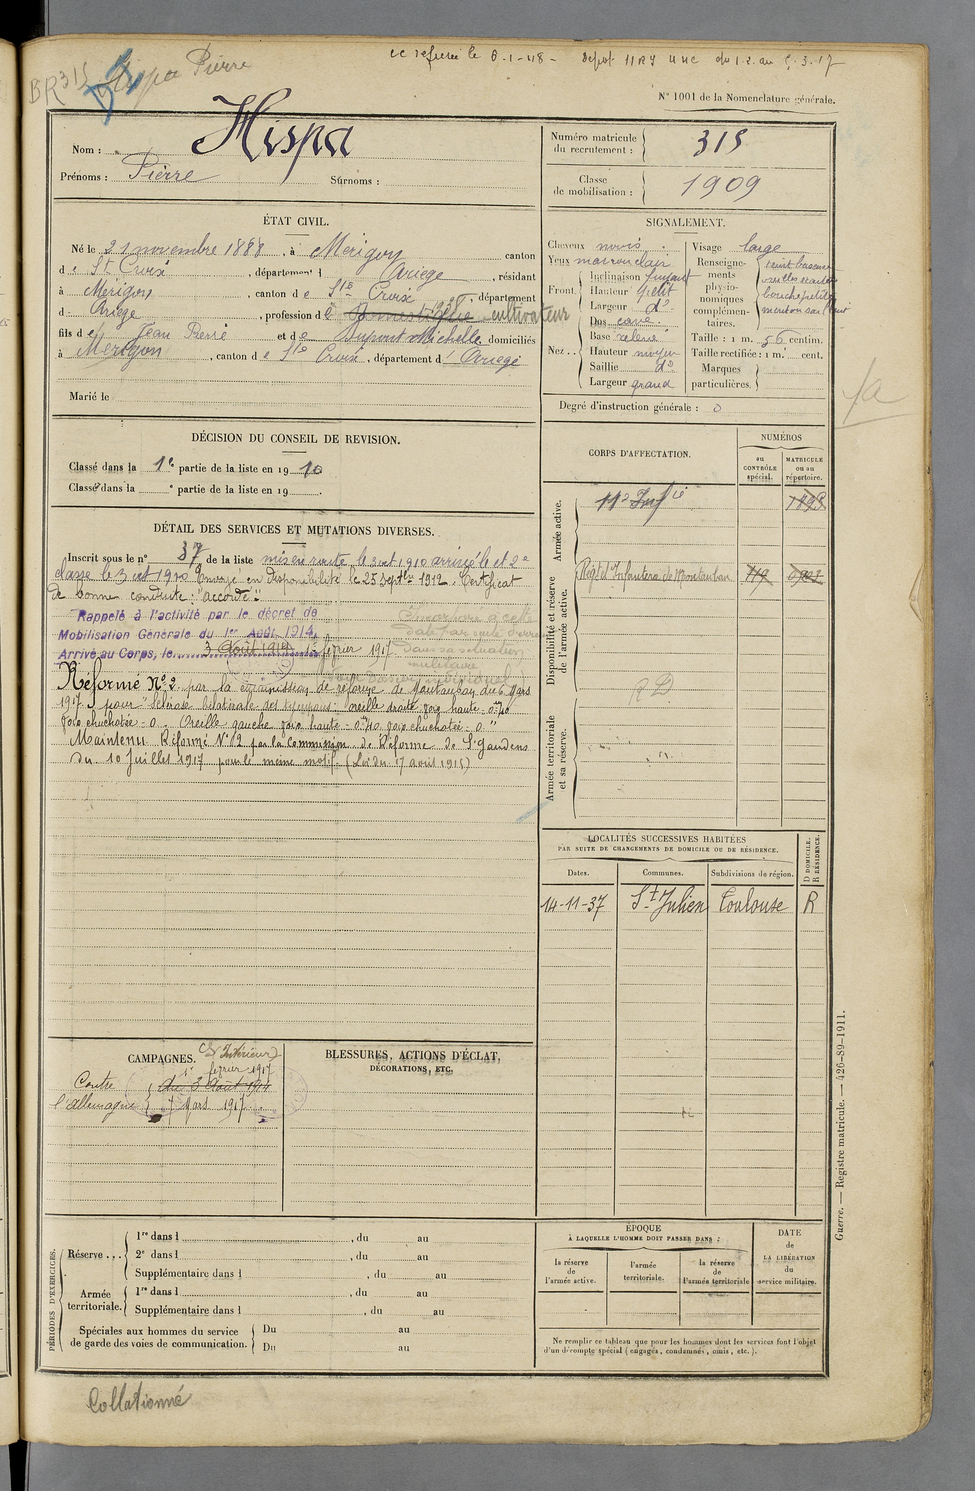 cc refusée le 6-1-48 - Dépot
BR 315 Hispa Pierre
N° 1001 de la Nomenclature générale.
Nom : Hispa
Prénoms : Pierre Surnoms :
Numéro matricule du recrutement : 315
Classe de mobilisation : 1909
ÉTAT CIVIL.
Né le 21 novembre 1888, à Merigon canton
de St Croix, département d Ariege, résidant
à Merigon, canton de Ste Croix, département
d Ariege, profession de cultivateur
fils de Jean Pierre et de Dupont Michelle domiciliés
à Merigon, canton de Ste Croix, département d'Ariege
Marié le
SIGNALEMENT.
Cheveux noirs
Yeux marron clair
Front. Inclinaison fuyant
Hauteur petit
Largeur do
Nez. Dos cave
Base relevé
Hauteur moyen
Saillie do
Largeur grand
Visage large
Renseignements physionomiques complémentaires.
Taille : 1 m. 56 centim.
Taille rectifiée : 1 m. cent.
Marques particulières.
Degré d'instruction générale : 0
DÉCISION DU CONSEIL DE REVISION.
Classé dans la 1e partie de la liste en 1910
Classé dans la e partie de la liste en 19
DÉTAIL DES SERVICES ET MUTATIONS DIVERSES.
Inscrit sous le n° 37 de la liste mis en route le 3 oct 1910 arrivé le et 2e
classe le 3 oct 1910 Envoyé en disponibilité le 25 septbre 1912. Certificat
de bonne conduite : "accordé".
Rappelé à l'activité par le décret de
Mobilisation Générale du 1er Août 1914.
Arrivé au Corps, le 3 Août 1914 1er février 1917
Réformé N° 2 par la commission de réforme de Montauban du 6 Mars
1917 pour "Sclérose bilatérale des tympans : oreille droite voix haute - 0m40
voix chuchotée - 0. Oreille gauche voix haute - 0m40 voix chuchotée - 0"
Maintenu Réformé N° 2 par la commission de Réforme de St Gaudens
du 10 Juillet 1917 pour le même motif. (Loi du 17 avril 1915)
CORPS D'AFFECTATION.
NUMÉROS
au CONTRÔLE spécial.
MATRICULE ou au répertoire.
Armée active.
11e Inf ie
Disponibilité et réserve de l'armée active.
Régt d'Infanterie de Montauban
Armée territoriale et sa réserve.
LOCALITÉS SUCCESSIVES HABITÉES
PAR SUITE DE CHANGEMENTS DE DOMICILE OU DE RÉSIDENCE.
Dates. Communes. Subdivisions de région. D DOMICILE. R RÉSIDENCE.
14-11-37 St Julien Toulouse R
CAMPAGNES.
Intérieur
1er février 1917
Contre du 3 Août 1914
l'Allemagne 7 Mars 1917
BLESSURES, ACTIONS D'ÉCLAT,
DÉCORATIONS, ETC.
PÉRIODES D'EXERCICES.
Réserve... 1re dans l , du au
2e dans l , du au
Supplémentaire dans l , du au
Armée territoriale. 1re dans l , du au
Supplémentaire dans l , du au
Spéciales aux hommes du service de garde des voies de communication. Du au
Du au
ÉPOQUE
À LAQUELLE L'HOMME DOIT PASSER DANS :
la réserve de l'armée active.
l'armée territoriale.
la réserve de l'armée territoriale
DATE de LA LIBÉRATION du service militaire.
Ne remplir ce tableau que pour les hommes dont les services font l'objet
d'un décompte spécial (engagés, condamnés, omis, etc.).
Guerre. — Registre matricule. — 426-89-1911.
Collationné